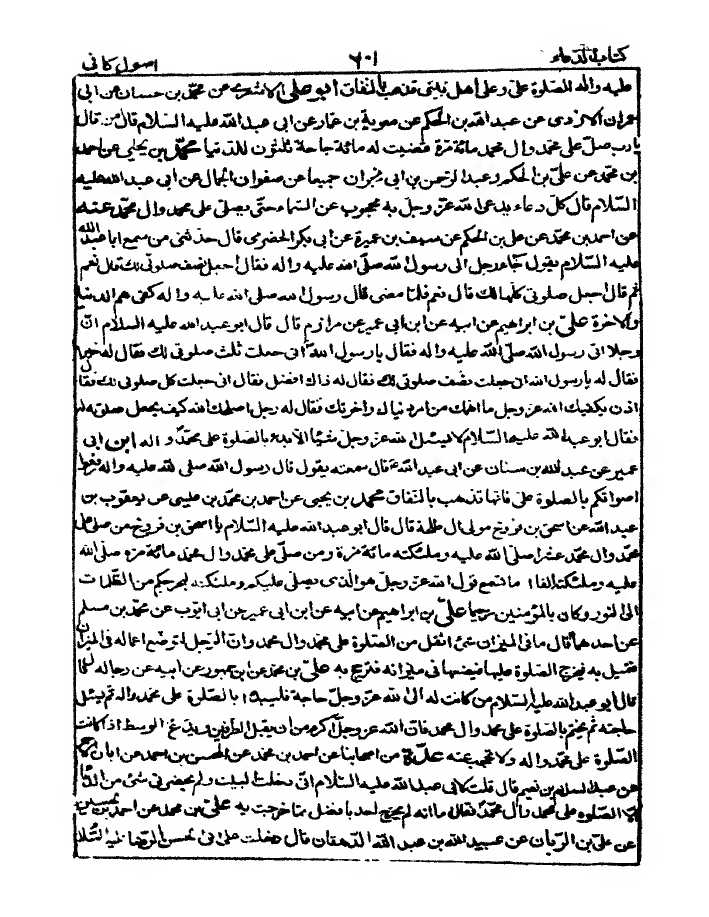 كتاب الدعاء ٦٠١ اصول كافي
عليه واله الصلوة علي وعلى اهل بيتي تذهب بالنفاق ابو علي الاشعري عن محمد بن حسان عن ابي
عمران الازدي عن عبد الله بن الحكم عن معوية بن عمار عن ابي عبد الله عليه السلام قال من قال
يا رب صل على محمد وال محمد مائة مرة قضيت له مائة حاجة ثلثون للدنيا محمد بن يحيى عن احمد
بن محمد عن علي بن الحكم وعبد الرحمن بن ابي نجران جميعا عن صفوان الجمال عن ابي عبد الله عليه
السلام قال كل دعاء يدعى الله عز وجل به محجوب عن السماء حتى يصلى على محمد وال محمد عنه
عن احمد بن محمد عن علي بن الحكم عن سيف بن عميرة عن ابي بكر الحضرمي قال حدثني من سمع ابا عبد الله
عليه السلام يقول جاء رجل الى رسول الله صلى الله عليه واله فقال اجعل نصف صلوتي لك قال نعم
ثم قال اجعل صلوتي كلها لك قال نعم فلما مضى قال رسول الله صلى الله عليه واله كفي هم الدنيا
والاخرة علي بن ابراهيم عن ابيه عن ابن ابي عمير عن مرازم قال قال ابو عبد الله عليه السلام ان
رجلا اتى رسول الله صلى الله عليه واله فقال يا رسول الله اني جعلت ثلث صلوتي لك فقال له خيرا
فقال له يا رسول الله اني جعلت نصف صلوتي لك فقال له ذاك افضل فقال اني جعلت كل صلوتي لك فقال
اذن يكفيك الله عز وجل ما اهمك من امر دنياك واخرتك فقال له رجل اصلحك الله كيف يجعل صلوته له
فقال ابو عبد الله عليه السلام لا يسئل الله عز وجل شيئا الا بدء بالصلوة على محمد واله ابن ابي
عمير عن عبد الله بن سنان عن ابي عبد الله قال سمعته يقول قال رسول الله صلى الله عليه واله ارفعوا
اصواتكم بالصلوة علي فانها تذهب بالنفاق محمد بن يحيى عن احمد بن محمد بن عيسى عن يعقوب بن
عبد الله عن اسحق بن فروخ مولى ال طلحة قال قال ابو عبد الله عليه السلام يا اسحق بن فروخ من صلى على
محمد وال محمد عشرا صلى الله عليه وملئكته مائة مرة ومن صلى على محمد وال محمد مائة مرة صلى الله
عليه وملئكته الفا اما تسمع قول الله عز وجل هو الذي يصلي عليكم وملئكته ليخرجكم من الظلمات
الى النور وكان بالمؤمنين رحيما علي بن ابراهيم عن ابيه عن ابن ابي عمير عن ابي ايوب عن محمد بن مسلم
عن احدهما قال ما في الميزان شيء اثقل من الصلوة على محمد وال محمد وان الرجل لتوضع اعماله في الميزان
فتميل به فيخرج الصلوة عليه فيضعها في ميزانه فترجح به علي بن محمد عن ابن جمهور عن ابيه عن رجاله قال
قال ابو عبد الله عليه السلام من كانت له الى الله عز وجل حاجة فليبدا بالصلوة على محمد واله ثم يسئل
حاجته ثم يختم بالصلوة على محمد وال محمد فان الله عز وجل اكرم من ان يقبل الطرفين ويدع الوسط اذ كانت
الصلوة على محمد واله ولا تحجب عنه عدة من اصحابنا عن احمد بن محمد عن المحسن بن احمد عن ابان
عن عبد السلام بن نعيم قال قلت لابي عبد الله عليه السلام اني دخلت البيت ولم يحضرني شيء من الدعاء
الا الصلوة على محمد وال محمد فقال اما انه لم يخرج احد بافضل مما خرجت به علي بن محمد عن احمد بن الحسين
عن علي بن الريان عن عبيد الله بن عبد الله الدهقان قال دخلت على ابي الحسن الرضا عليه السلام